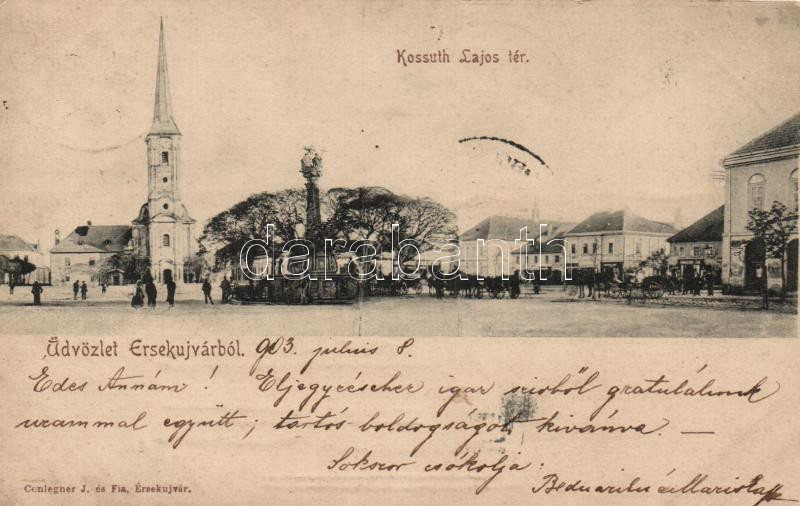 Kossuth Lajos tér.
darabanth
Üdvözlet Érsekujvárból. 903 julius 8.
Édes Annám! Eljegyzéséhez igaz szivből gratulálunk
urammal együtt; tartós boldogságot kivánva. —
Sokszor csókolja:
Conlegner J. és Fia, Érsekujvár.